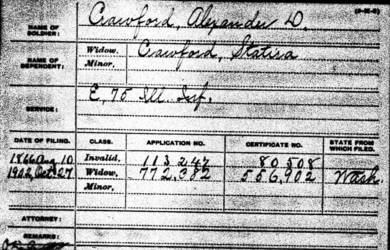 NAME OF SOLDIER: Crawford, Alexander D.
NAME OF DEPENDENT: Widow, Crawford, Statira
Minor,
SERVICE: E, 75 Ill. Inf.
DATE OF FILING. CLASS. APPLICATION NO. CERTIFICATE NO. STATE FROM WHICH FILED.
1866 Aug 10 Invalid, 113,247 80,508
1902, Oct 27 Widow, 772,382 556,902 Wash.
Minor,
ATTORNEY:
REMARKS: